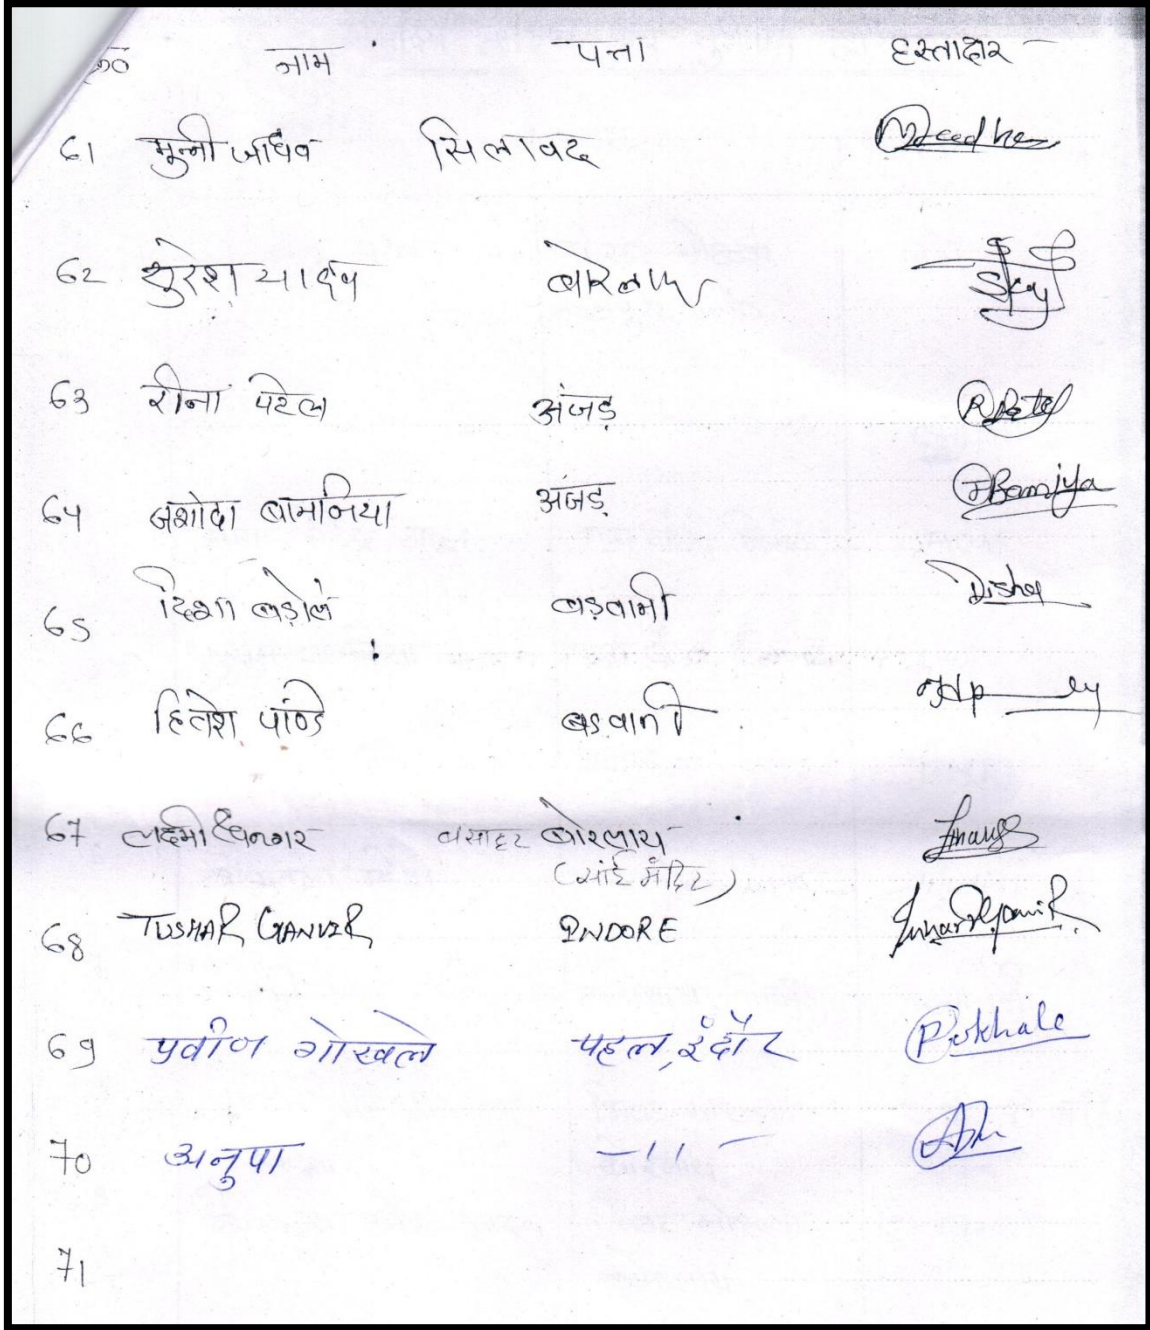 क्र० नाम पत्ता हस्ताक्षर
61 मुन्नी जाधव सिलावद
62 सुरेश यादव
63 रीना पटेल अंजड़ R Patel
64 जशोदा बामनिया अंजड़
65 दिशा बड़ोले बड़वानी Disha
66 हितेश पाण्डे बड़वानी
67 लक्ष्मी बोरलाय
(सांई मंदिर)
68 TUSHAR GANVIR INDORE
69 प्रवीण गोखले पहल, इंदौर Pokhale
70 अनुपा —,,—
71